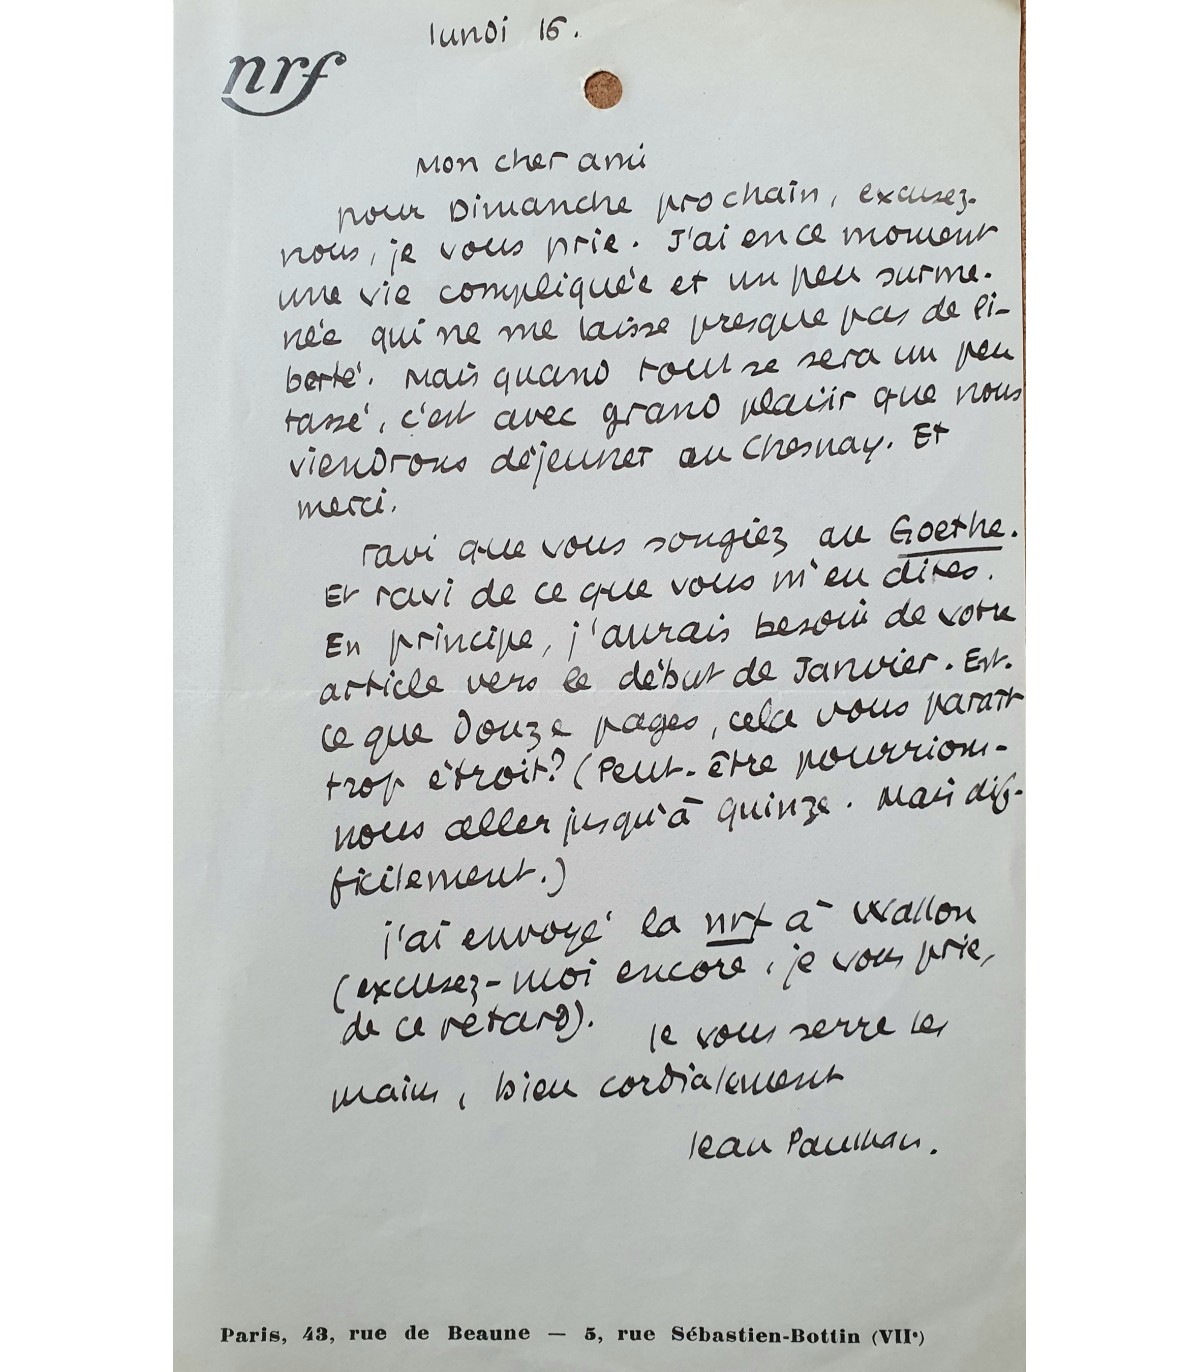 lundi 16.
nrf
Mon cher ami
pour Dimanche prochain, excusez-
nous, je vous prie. J'ai en ce moment
une vie compliquée et un peu surme-
née qui ne me laisse presque pas de li-
berté. Mais quand tout se sera un peu
tassé, c'est avec grand plaisir que nous
viendrons déjeuner au Chesnay. Et
merci.
ravi que vous songiez au Goethe.
Et ravi de ce que vous m'en dites.
En principe, j'aurais besoin de votre
article vers le début de Janvier. Est-
ce que douze pages, cela vous paraît
trop étroit? (Peut-être pourrions-
nous aller jusqu'à quinze. Mais dif-
ficilement.)
j'ai envoyé la nrf à Wallon
(excusez-moi encore, je vous prie,
de ce retard). Je vous serre les
mains, bien cordialement
Jean Paulhan.
Paris, 43, rue de Beaune — 5, rue Sébastien-Bottin (VIIe)